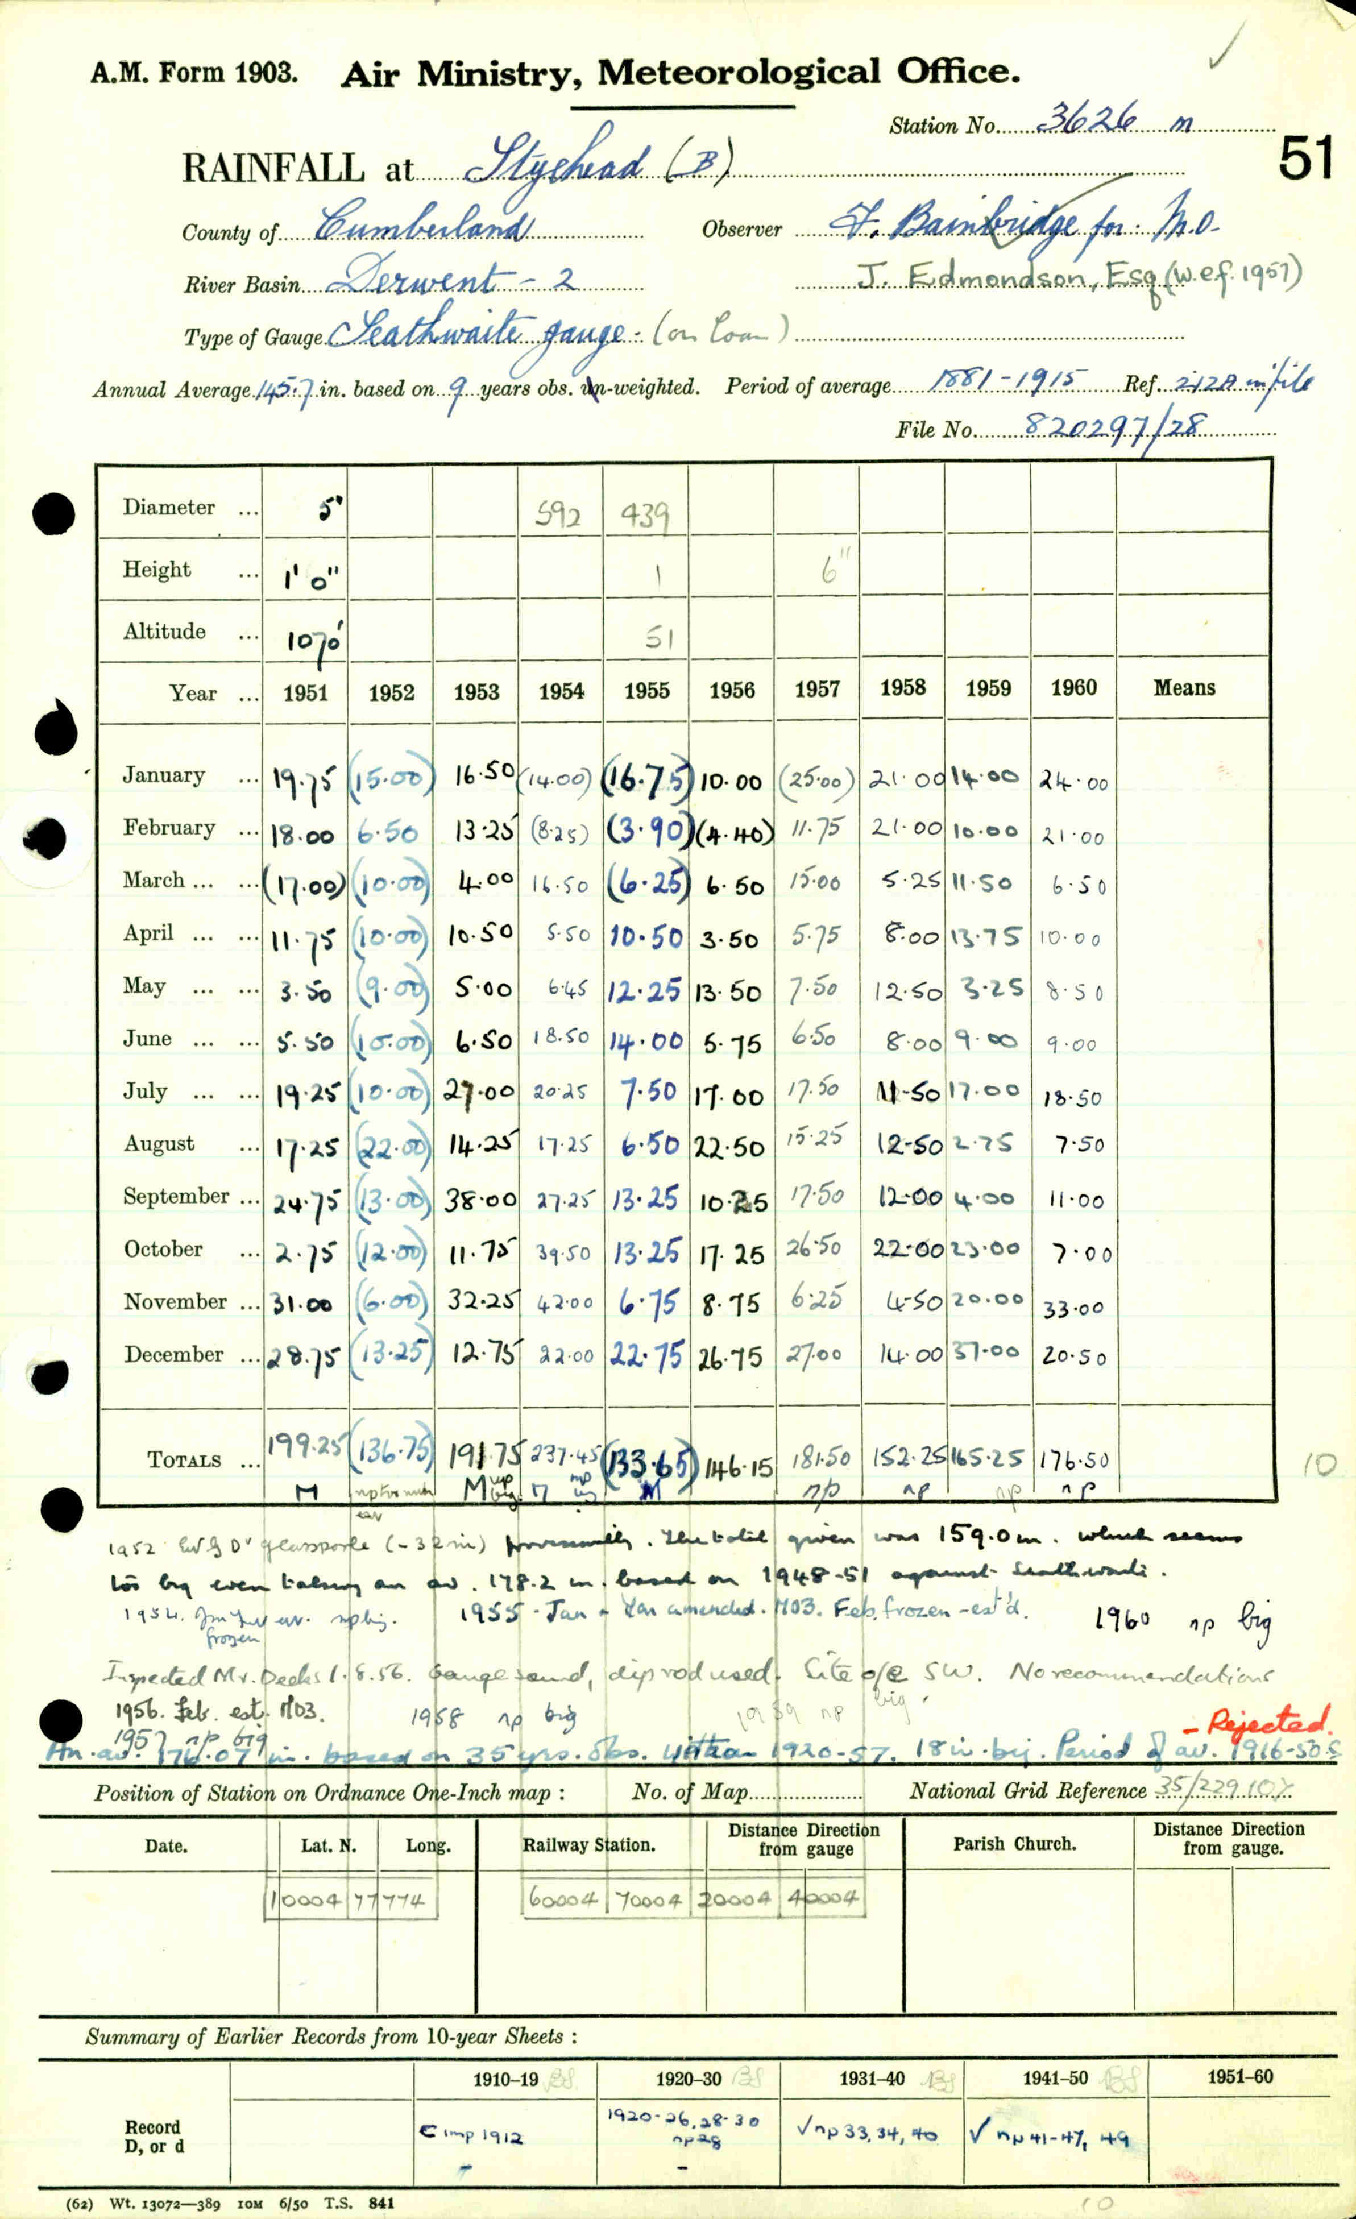 A.M. Form 1903. Air Ministry, Meteorological Office.
Station No. 3626 m
51
RAINFALL at Styehead (B)
County of Cumberland Observer F. Bainbridge for M.O.
River Basin Derwent - 2 J. Edmondson, Esq (w.e.f. 1957)
Type of Gauge Seathwaite gauge - (on loan)
Annual Average 145.7 in. based on 9 years obs. un-weighted. Period of average 1881-1915 Ref. 212A in file
File No. 820297/28
Diameter ... 5" 592 439
Height ... 1' 0" 1 6"
Altitude ... 1070' 51
Year ... 1951 1952 1953 1954 1955 1956 1957 1958 1959 1960 Means
January ... 19.75 (15.00) 16.50 (14.00) (16.75) 10.00 (25.00) 21.00 14.00 24.00
February ... 18.00 6.50 13.25 (8.25) (3.90) (4.40) 11.75 21.00 10.00 21.00
March ... ... (17.00) (10.00) 4.00 16.50 (6.25) 6.50 15.00 5.25 11.50 6.50
April ... ... 11.75 (10.00) 10.50 5.50 10.50 3.50 5.75 8.00 13.75 10.00
May ... ... 3.50 (9.00) 5.00 6.45 12.25 13.50 7.50 12.50 3.25 8.50
June ... ... 5.50 (10.00) 6.50 18.50 14.00 5.75 6.50 8.00 9.00 9.00
July ... ... 19.25 (10.00) 27.00 20.25 7.50 17.00 17.50 11.50 17.00 18.50
August ... 17.25 (22.00) 14.25 17.25 6.50 22.50 15.25 12.50 2.75 7.50
September ... 24.75 (13.00) 38.00 27.25 13.25 10.25 17.50 12.00 4.00 11.00
October ... 2.75 (12.00) 11.75 39.50 13.25 17.25 26.50 22.00 23.00 7.00
November ... 31.00 (6.00) 32.25 42.00 6.75 8.75 6.25 4.50 20.00 33.00
December ... 28.75 (13.25) 12.75 22.00 22.75 26.75 27.00 14.00 37.00 20.50
TOTALS ... 199.25 (136.75) 191.75 237.45 (133.65) 146.15 181.50 152.25 165.25 176.50 10
M M M np np np np
1952 (-32 in) provisionally. The total given was 159.0 in. which seems
too big even taking an av. 178.2 in. based on 1948-51 against Seathwaite.
1954. np big. 1955 - Jan + Mar amended. M03. Feb. frozen - est'd. 1960 np big
frozen
Inspected Mr. Deeks 1.8.56. Gauge sound, dip rod used. Site o/e SW. No recommendations
1956. Feb. est. M03. 1958 np big 1959 np big.
1957 np big - Rejected.
An. av. 176.07 in. based on 35 yrs. obs. within 1920-57. 18 in. big. Period of av. 1916-50
Position of Station on Ordnance One-Inch map : No. of Map National Grid Reference 35/229107
Date. Lat. N. Long. Railway Station. Distance Direction from gauge Parish Church. Distance Direction from gauge.
10004 77774 60004 70004 20004 40004
Summary of Earlier Records from 10-year Sheets :
1910-19 BS 1920-30 BS 1931-40 BS 1941-50 BS 1951-60
Record D, or d C imp 1912 1920-26, 28-30 np28 √ np 33, 34, 40 √ np 41-47, 49
- -
(62) Wt. 13072—389 10M 6/50 T.S. 841
10